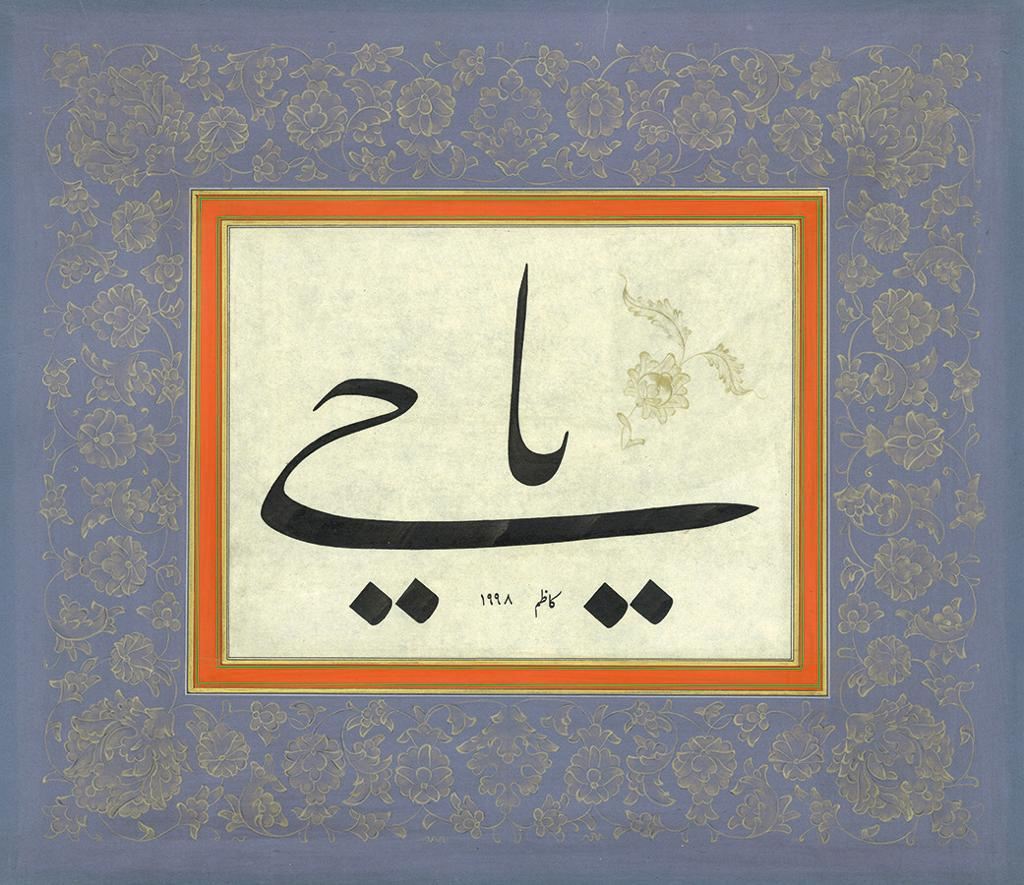 يا حي
كاظم ١٩٩٨